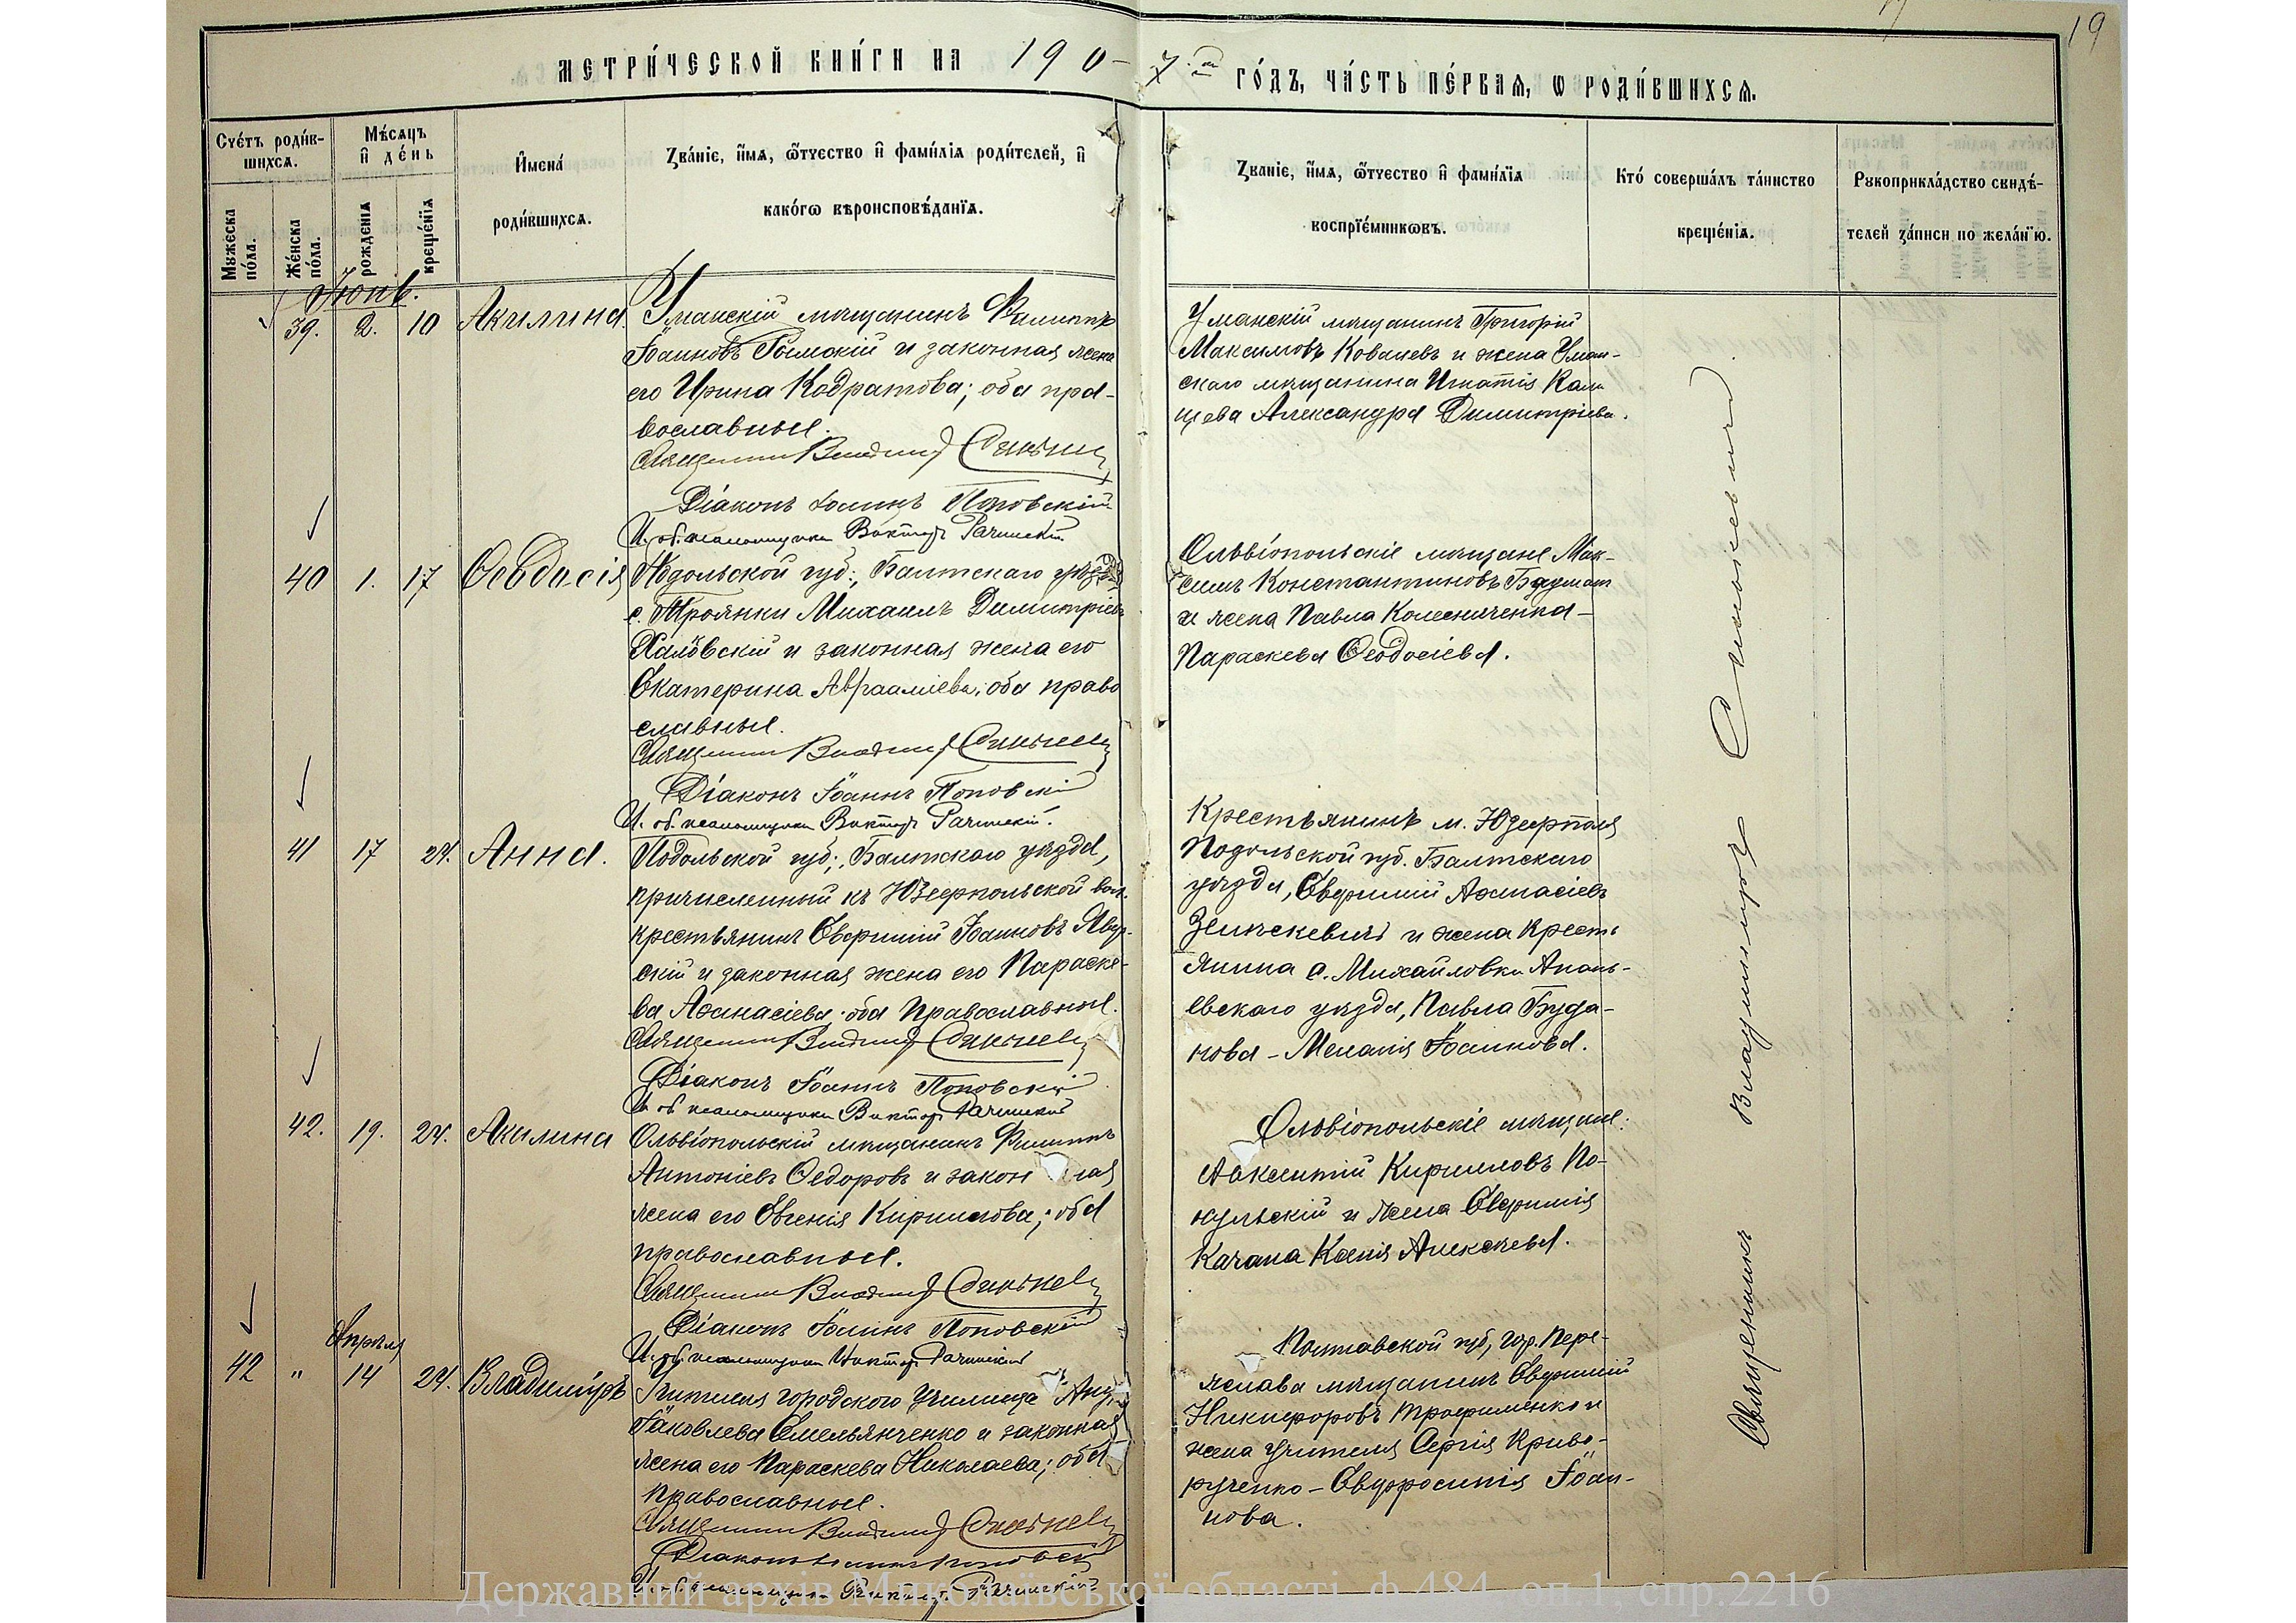 19
МЕТРИ́ЧЕСКОЙ КНИ́ГИ НА 190-7 ГО́ДЪ, ЧА́СТЬ ПЕ́РВАѦ, Ѡ РОДИ́ВШИХСѦ.
Сче́тъ роди́в-
шихсѧ.
Мꙋжеска по́ла.
Же́нска по́ла.
Мѣ́сѧцъ
и҆ де́нь
рожденїѧ
креще́нїѧ
И҆мена́
роди́вшихсѧ.
Зва́нїе, и҆́мѧ, ѻ҆́тчество и҆ фами́лїѧ роди́телей, и҆
како́гѡ вѣроисповѣ́данїѧ.
Званїе, и҆́мѧ, ѻ҆́тчество и҆ фами́лїѧ
воспрїе́мникѡвъ.
Кто́ соверша́лъ та́инство
креще́нїѧ.
Рꙋкоприкла́дство свидѣ́-
телей за́писи по жела́нїю.
Іюнь.
39. 2. 10 Акилина
Уманскій мѣщанинъ Филиппъ
Іоанновъ Римскій и законная жена
его Ирина Кодратова; оба пра-
вославные.
Священникъ Владимір Синькевич
Діаконъ Іоаннъ Поповскій
И. об. псаломщика Викторъ Рачинскій
Уманскій мѣщанинъ Григорій
Максимовъ Ковалевъ и жена Уман-
скаго мѣщанина Игнатія
Александра Димитріева.
40 1. 17 Ѳеодосія
Подольской губ:, Балтскаго уѣзда
с. Троянки Михаилъ Димитріевъ
и законная жена его
Екатерина Авраамиева; оба право
славные.
Священникъ Владимір Синькевич
Діаконъ Іоаннъ Поповскій
И. об. псаломщика Викторъ Рачинскій.
Ольвіопольскіе мѣщане Мак-
симъ Константиновъ
и жена Павла Колесниченка-
Параскева Ѳеодосіева.
41 17 24. Анна.
Подольской губ:, Балтскаго уѣзда,
причисленный къ Юзефпольской вол.
крестьянинъ Евфимій Іоанновъ Явор-
скій и законная жена его Параске-
ва Аѳанасіева; оба православные.
Священникъ Владимір Синькевич
Діаконъ Іоаннъ Поповскій
И. об. псаломщика Викторъ Рачинскій
Крестьянинъ м. Юзефполя
Подольской губ. Балтскаго
уѣзда, Евфимій Аѳанасіевъ
и жена кресть
янина с. Михайловки Анань-
евскаго уѣзда, Павла Буда-
нова - Меланія Іоаннова.
42. 19. 24. Акилина
Ольвіопольскій мѣщанинъ Филиппъ
Антоніевъ Ѳедоровъ и закон ная
жена его Евгенія Кириллова; оба
православные.
Священникъ Владимір Синькевич
Діаконъ Іоаннъ Поповскій
И. об. псаломщика Викторъ Рачинскій
Ольвіопольскіе мѣщане:
Авксентій Кирилловъ По-
кульскій и жена Евфимія
Качана Ксенія Алексѣева.
Апрѣля
42 " 14 24. Владиміръ
Учителя городского училища
Іаковлева Омельянченко и законная
жена его Параскева Николаева; оба
православные.
Священникъ Владимір Синькевич
Діаконъ Іоаннъ Поповскій
И. об. псаломщика Викторъ Рачинскій
Полтавской губ, гор. Пере-
яслава мѣщанинъ Евфимій
Никифоровъ Трофименко и
жена учителя Сергія Криво-
рученко - Евфросинія Іоан-
нова.
Священникъ Владиміръ Синькевичъ
Державний архів Миколаївської області, ф.484, оп.1, спр.2216